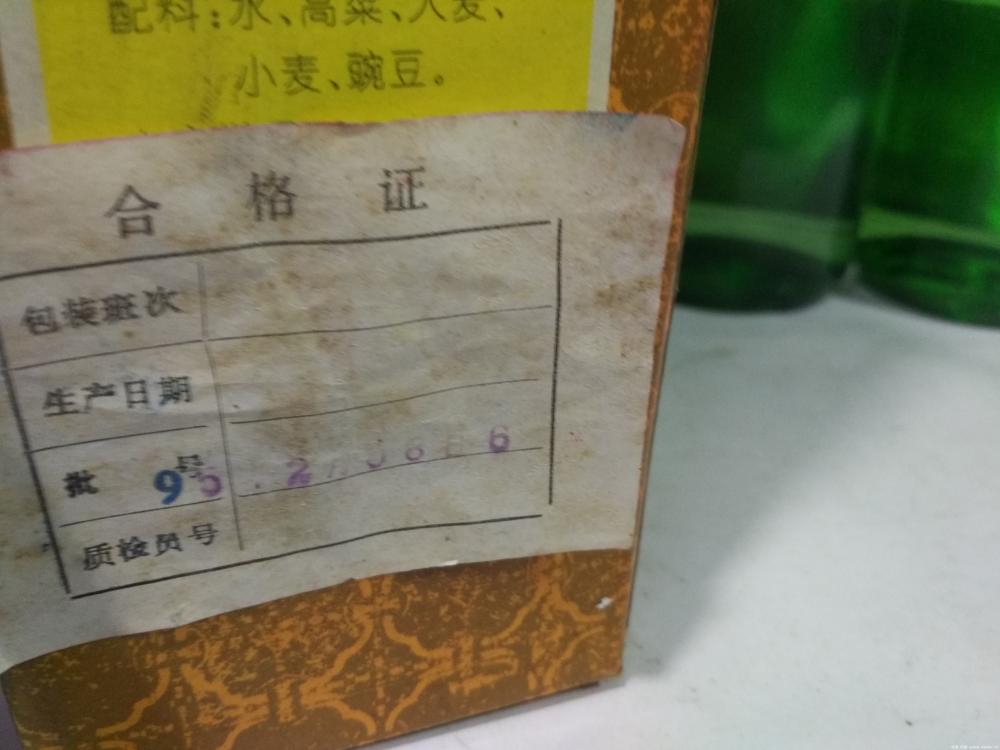 配料:水、高粱、大麦、
小麦、豌豆。
合格证
包装班次
生产日期
批号 95.2
6
质检员号